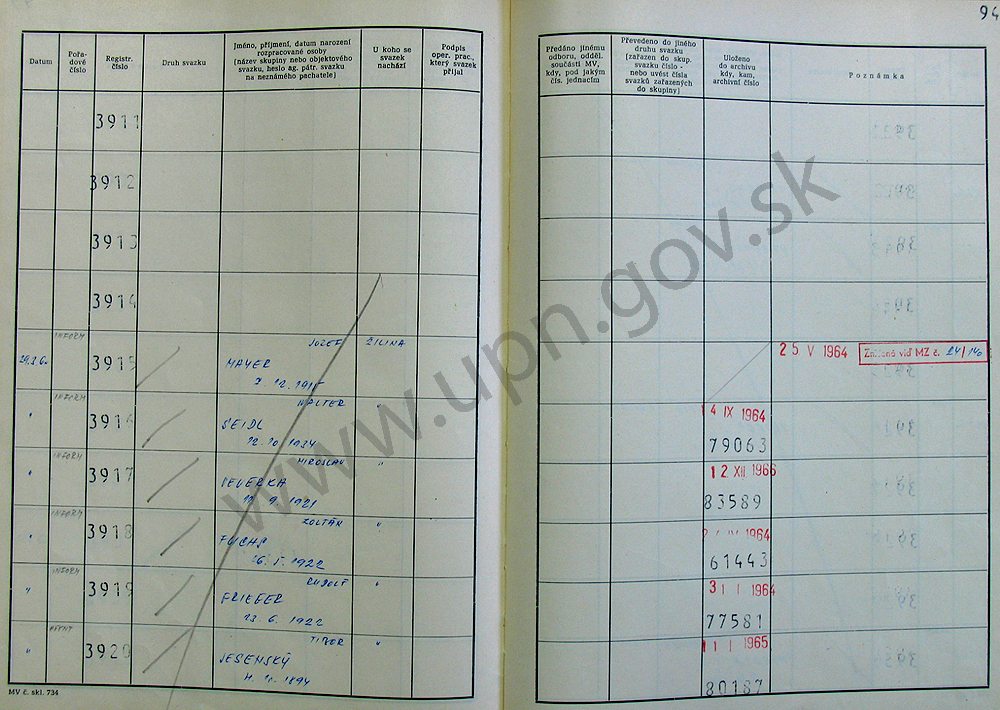 94
Datum
Pořa-
dové
číslo
Registr.
číslo
Druh svazku
Jméno, příjmení, datum narození
rozpracované osoby
(název skupiny nebo objektového
svazku, heslo ag. pátr. svazku
na neznámého pachatele)
U koho se
svazek
nachází
Podpis
oper. prac.,
který svazek
přijal
Předáno jinému
odboru, odděl.
součásti MV,
kdy, pod jakým
čís. jednacím
Převedeno do jiného
druhu svazku
(zařazen do skup.
svazku číslo -
nebo uvést čísla
svazků zařazených
do skupiny)
Uloženo
do archivu
kdy, kam,
archivní číslo
Poznámka
3911
3912
3913
3914
INFORM
3915
JOZEF
ŽILINA
MAYER
25 V 1964
viď MZ č. 24/
INFORM
3916
WALTER
"
SEIDL
12. 10. 1934
4 IX 1964
79063
INFORM
3917
MIROSLAV
"
9. 1921
12 XII 1966
83589
INFORM
3918
ZOLTÁN
"
FUCHS
1922
1964
61443
INFORM
3919
RUDOLF
"
23. 6. 1922
31 I 1964
77581
3920
TIBOR
"
JESENSKÝ
1894
11 I 1965
80187
MV č. skl. 734
www.upn.gov.sk